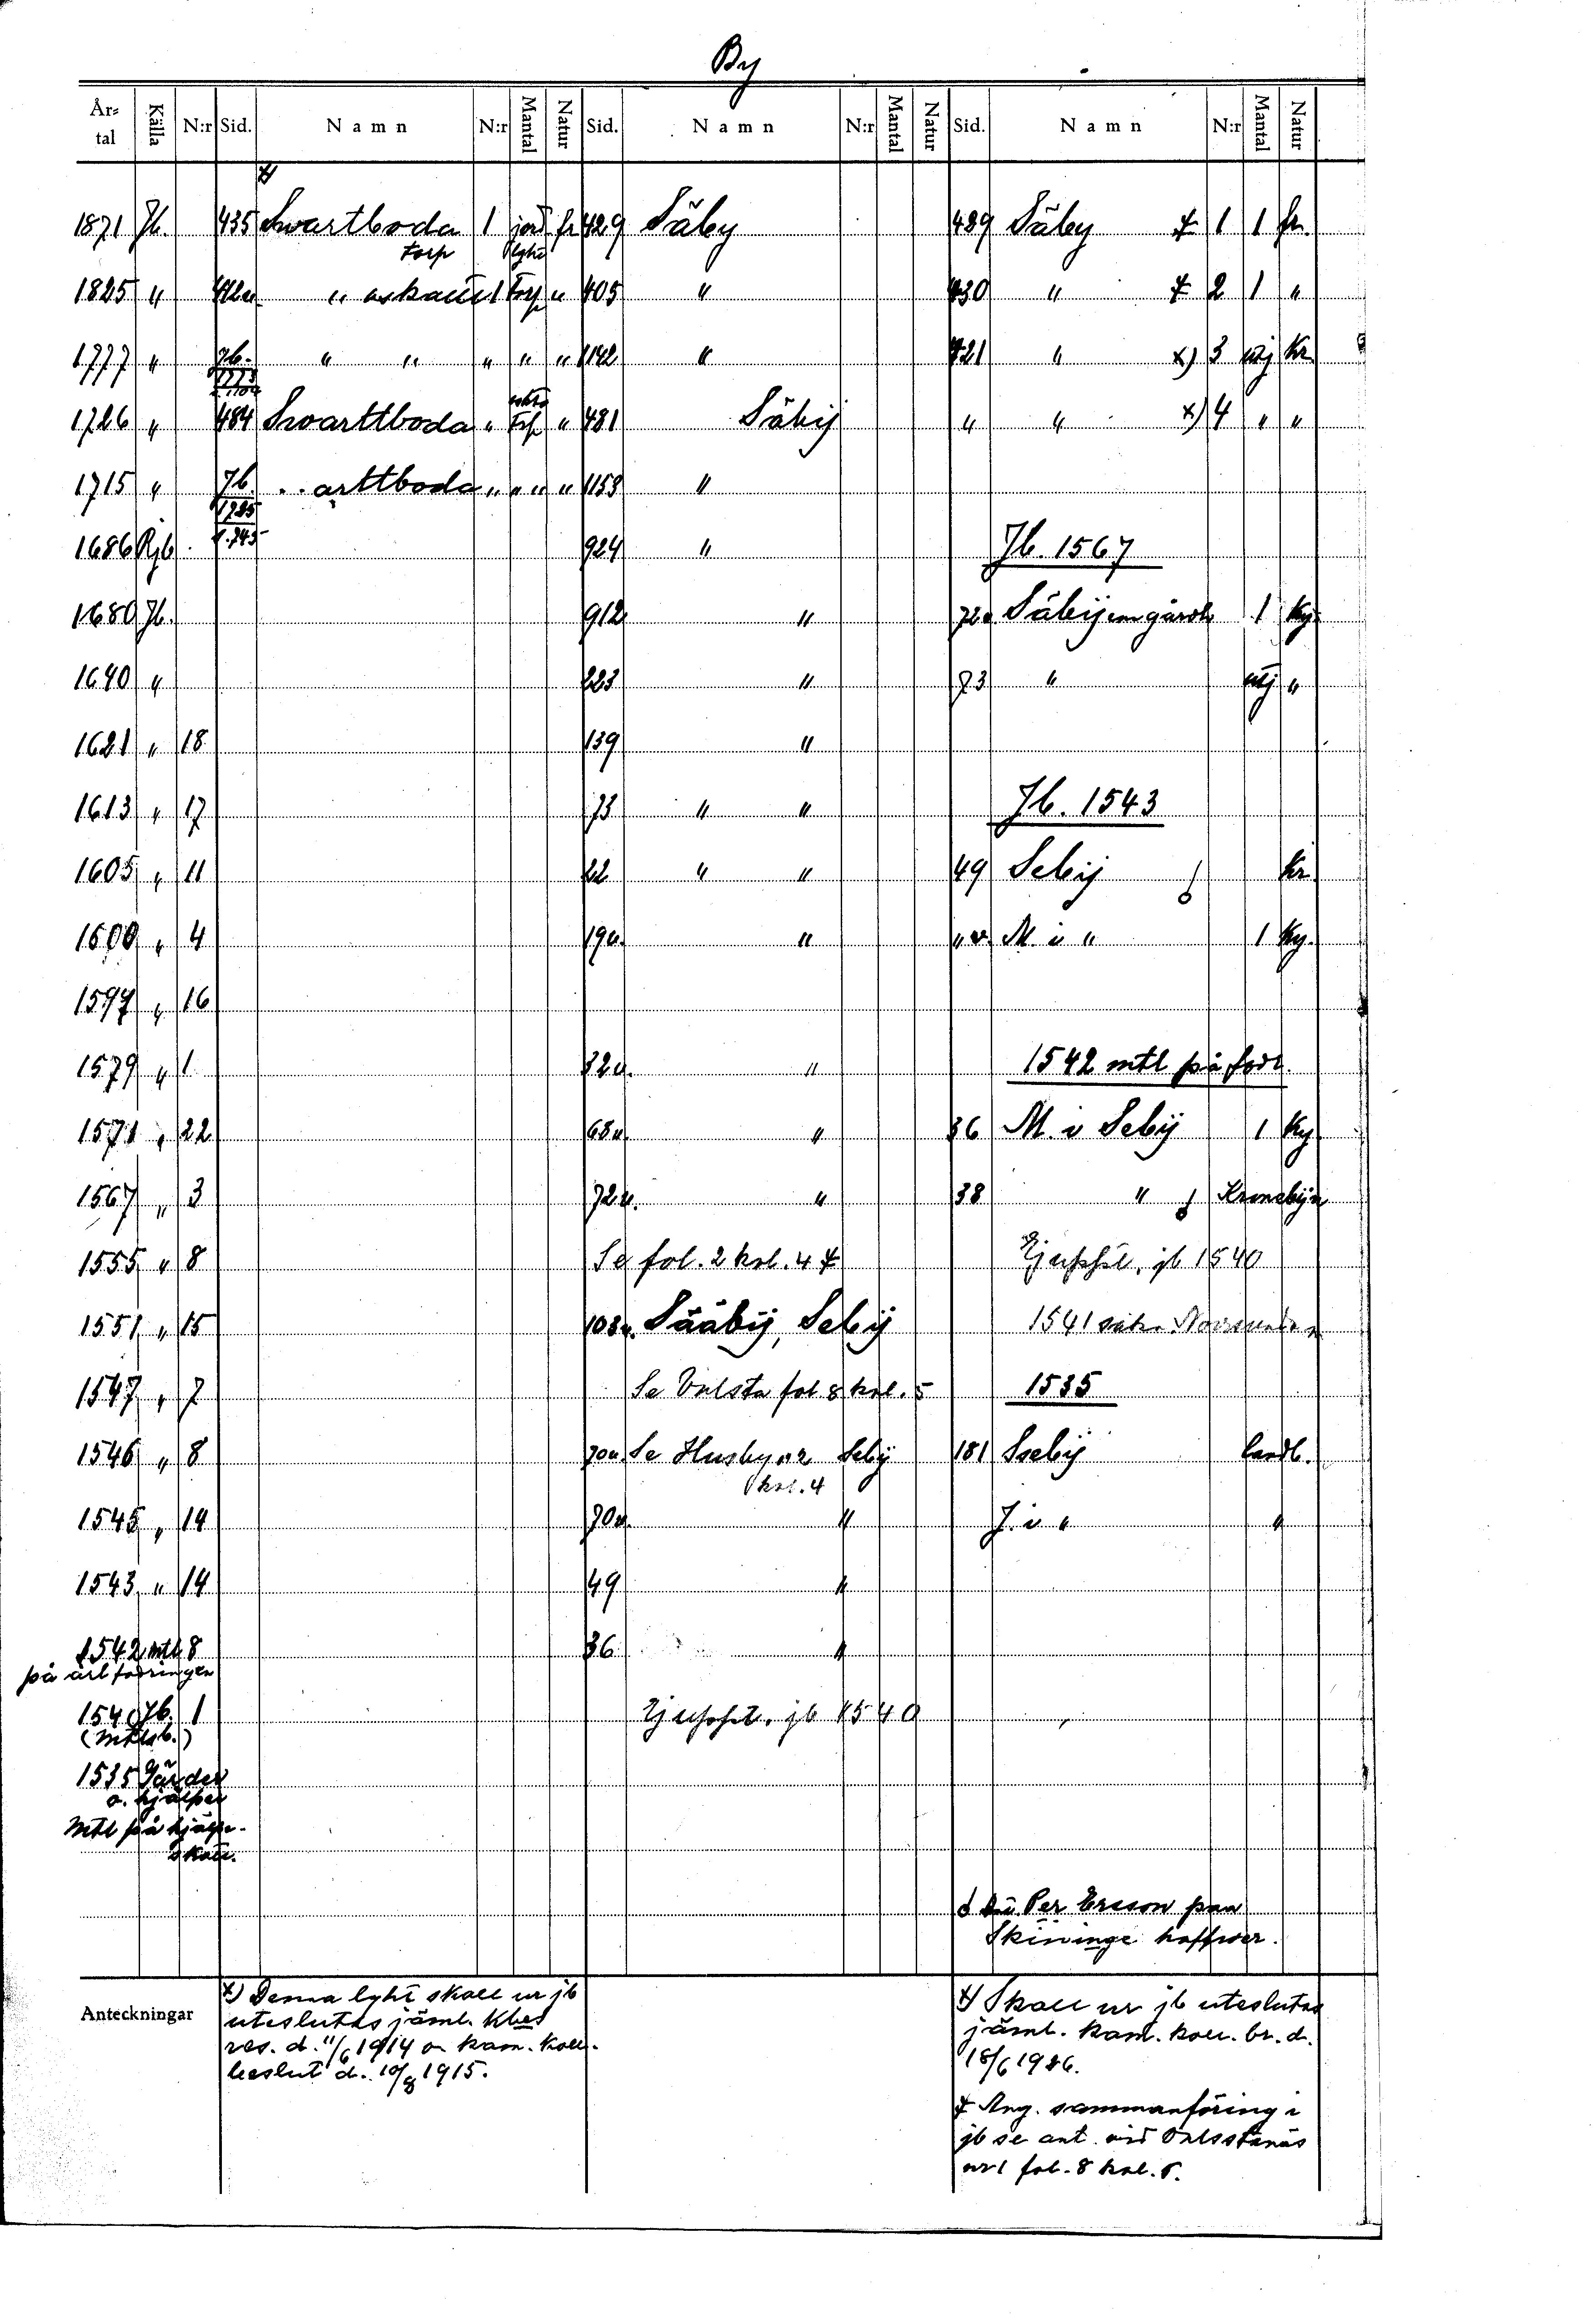 By
År-tal Källa N:r Sid. Namn N:r Mantal Natur Sid. Namn N:r Mantal Natur Sid. Namn N:r Mantal Natur
x)
1871 Jb. 435 Svartboda 1 jord fr 429 Säby 429 Säby ‡ 1 1 fr.
torp lght
1825 " " " 1 Torp " 405 " 430 " ‡ 2 1 "
1777 " Jb. " " " " " 1142 " 421 " x) 3 utj Kr.
1773
1726 " 484 Svarttboda " Torp " 481 Säbij " " x) 4 " "
1715 " Jb. ..arttboda " " " " 1153 "
1725
1686 Rjb. 924 " Jb. 1567
1680 Jb. 912 " 72u Säbij en gårdh 1 Ky
1640 " 223 " 73 " utj "
1621 " 18 139 "
1613 " 17 73 " " Jb. 1543
1605 " 11 22 " " 49 Sebij Kr.
1600 " 4 19u. " "v. M i " 1 Ky.
1597 " 16
1579 " 1 32u. " 1542 mtl på fodr.
1571 " 22 68u " 36 M. i Sebij 1 Ky
1567 " 3 72u. " 38 "
1555 " 8 Se fol. 2 kol. 4 ‡ Ej uppt. jb 1540
1551 " 15 103u. Sääbij, Sebij 1541
1547 " 7 Se Valsta fol 8 kol. 5 1535
1546 " 8 70u. Se Husby nr 2 Sebij 181 Ssebij landb.
kol. 4
1545 " 14 70u. " J. i " "
1543 " 14 49 "
1542 mtl 8 36 "
på årl fodringen
1540 Jb. 1 Ej uppt. jb 1540
(Mtlsb.)
1535 Gärder
o. hjälper
Mtl på hjälp-
skatt.
Per Ersson paa
Skininge haffwer.
Anteckningar
x) Denna lght skall ur jb
uteslutas jäml. Kbes
res. d. 11/6 1914 o kam. koll.
beslut d. 10/8 1915.
x) Skall ur jb uteslutas
jäml. kam. koll. br. d.
18/6 1926.
‡ Ang. sammanföring i
jb se ant. vid Valstanäs
nr 1 fol. 8 kol. 5.